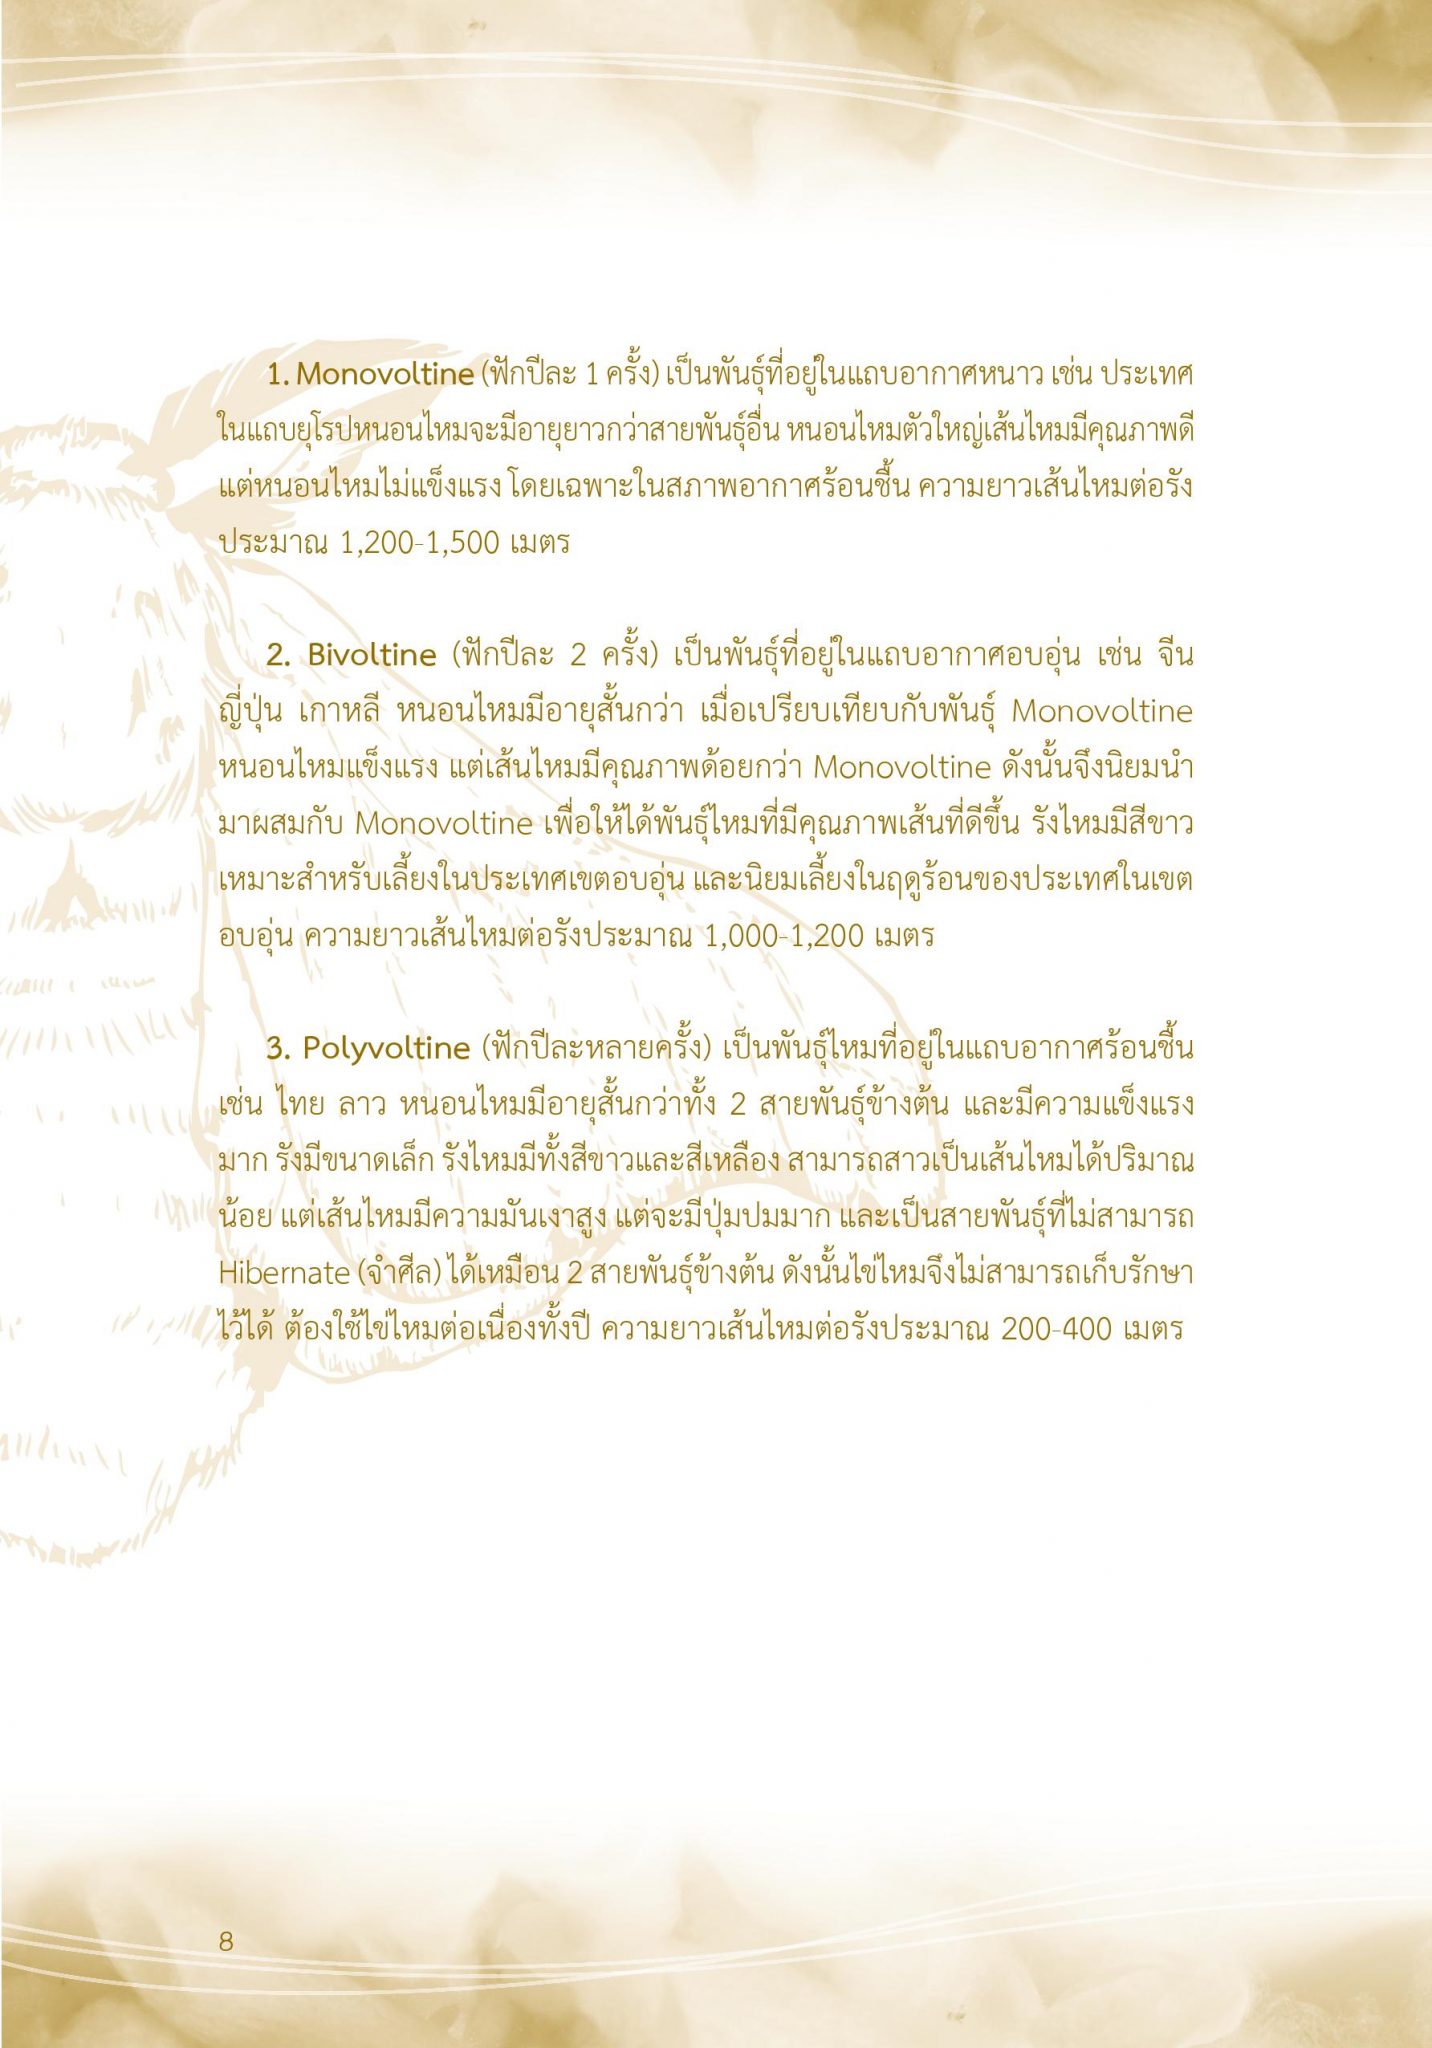 1. Monovoltine (ฟักปีละ 1 ครั้ง) เป็นพันธุ์ที่อยู่ในแถบอากาศหนาว เช่น ประเทศ
ในแถบยุโรปหนอนไหมจะมีอายุยาวกว่าสายพันธุ์อื่น หนอนไหมตัวใหญ่เส้นไหมมีคุณภาพดี
แต่หนอนไหมไม่แข็งแรง โดยเฉพาะในสภาพอากาศร้อนชื้น ความยาวเส้นไหมต่อรัง
ประมาณ 1,200-1,500 เมตร
2. Bivoltine (ฟักปีละ 2 ครั้ง) เป็นพันธุ์ที่อยู่ในแถบอากาศอบอุ่น เช่น จีน
ญี่ปุ่น เกาหลี หนอนไหมมีอายุสั้นกว่า เมื่อเปรียบเทียบกับพันธุ์ Monovoltine
หนอนไหมแข็งแรง แต่เส้นไหมมีคุณภาพด้อยกว่า Monovoltine ดังนั้นจึงนิยมนำ
มาผสมกับ Monovoltine เพื่อให้ได้พันธุ์ไหมที่มีคุณภาพเส้นที่ดีขึ้น รังไหมมีสีขาว
เหมาะสำหรับเลี้ยงในประเทศเขตอบอุ่น และนิยมเลี้ยงในฤดูร้อนของประเทศในเขต
อบอุ่น ความยาวเส้นไหมต่อรังประมาณ 1,000-1,200 เมตร
3. Polyvoltine (ฟักปีละหลายครั้ง) เป็นพันธุ์ไหมที่อยู่ในแถบอากาศร้อนชื้น
เช่น ไทย ลาว หนอนไหมมีอายุสั้นกว่าทั้ง 2 สายพันธุ์ข้างต้น และมีความแข็งแรง
มาก รังมีขนาดเล็ก รังไหมมีทั้งสีขาวและสีเหลือง สามารถสาวเป็นเส้นไหมได้ปริมาณ
น้อย แต่เส้นไหมมีความมันเงาสูง แต่จะมีปุ่มปมมาก และเป็นสายพันธุ์ที่ไม่สามารถ
Hibernate (จำศีล) ได้เหมือน 2 สายพันธุ์ข้างต้น ดังนั้นไข่ไหมจึงไม่สามารถเก็บรักษา
ไว้ได้ ต้องใช้ไข่ไหมต่อเนื่องทั้งปี ความยาวเส้นไหมต่อรังประมาณ 200-400 เมตร
8